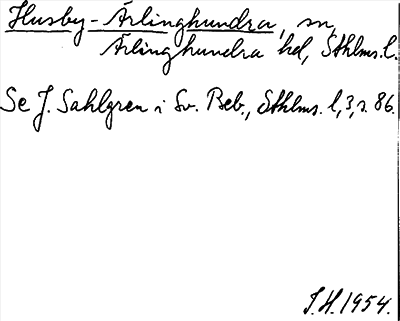 Husby-Ärlinghundra, sn,
Ärlinghundra hd, Sthlms. l.
Se J. Sahlgren i Sv. Beb., Sthlms. l, 3, s. 86.
I.H. 1954.